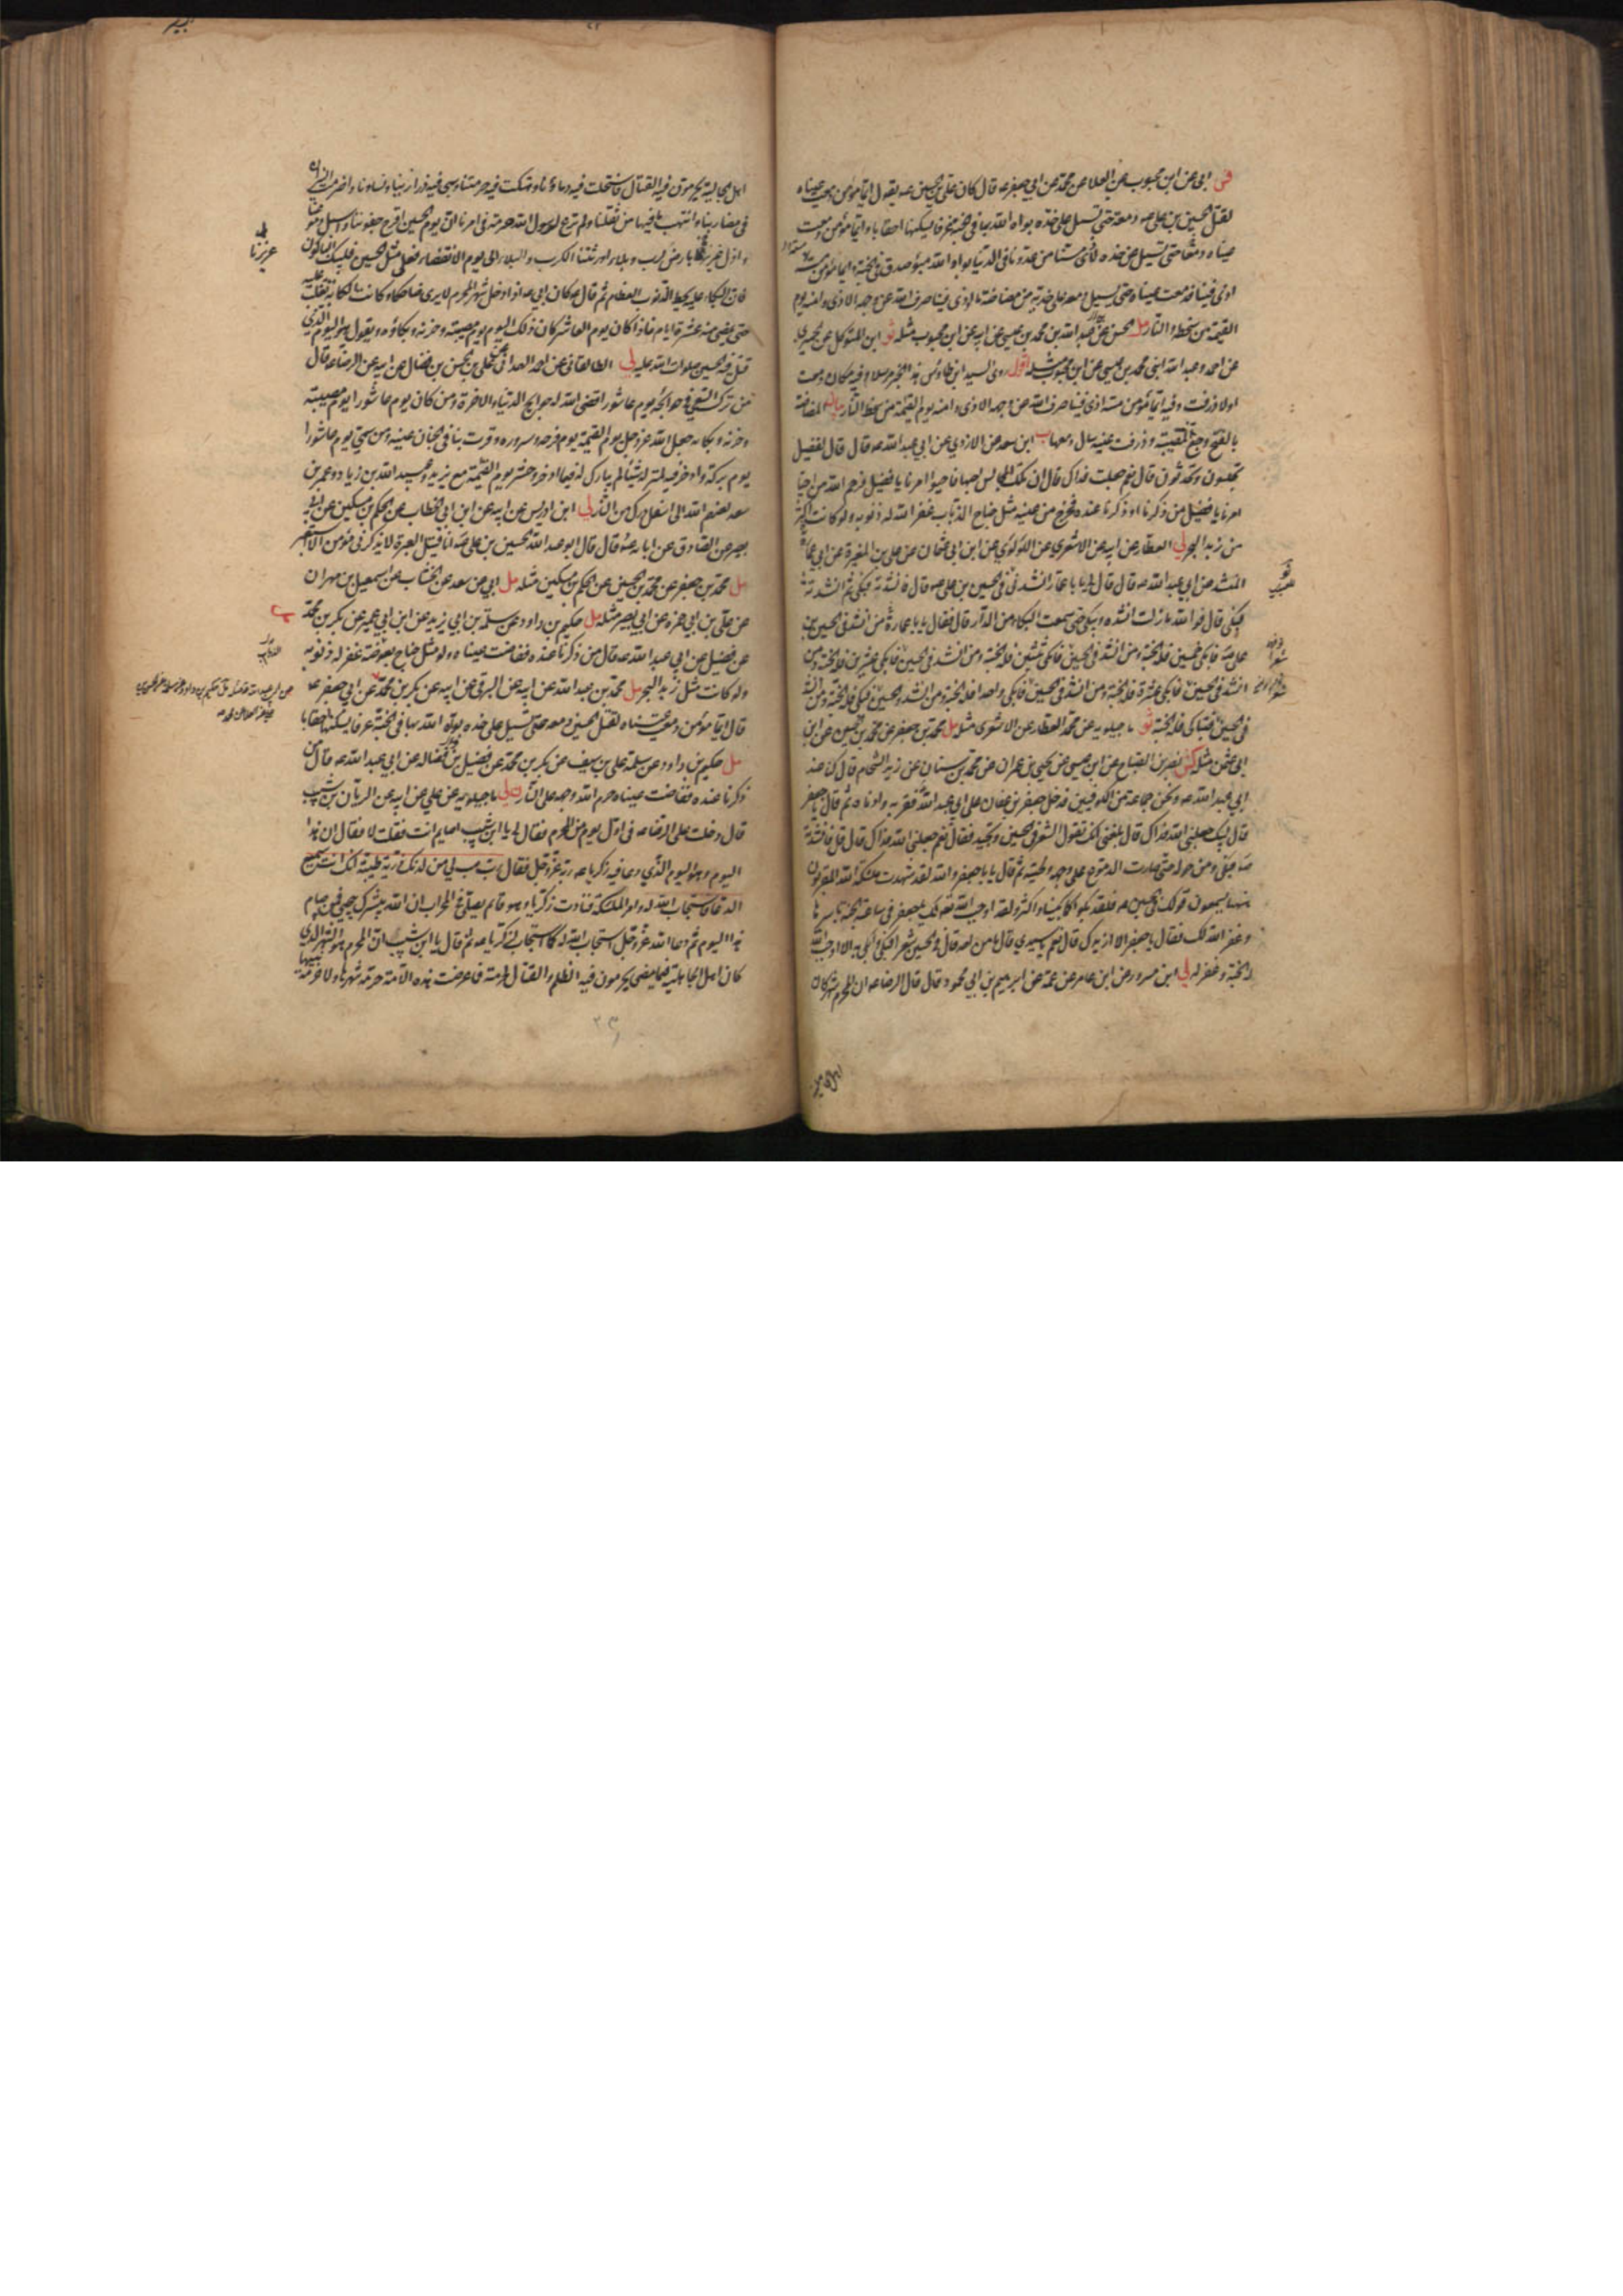 فس ابى عن ابن محبوب عن العلا عن محمد عن ابي جعفر عه قال كان علي بن الحسين عه يقول ايما مؤمن دمعت عيناه
لقتل الحسين بن علي عه دمعة حتى تسيل على خده بواه الله بها في الجنة غرفا يسكنها احقابا وايما مؤمن دمعت
عيناه دمعا حتى تسيل على خده لاذى مسنا من عدونا في الدنيا بواه الله مبوء صدق في الجنة وايما مؤمن مسه
اذى فينا فدمعت عيناه حتى يسيل دمعه على خديه من مضاضة ما اوذى فينا صرف الله عن وجهه الاذى وامنه يوم
القيمة من سخطه والنار مل الحسن بن عبد الله بن محمد بن عيسى عن ابيه عن ابن محبوب مثله ثو ابن المتوكل عن الحميري
عن احمد وعبد الله ابنى محمد بن عيسى عن ابن محبوب مثله اقول روى السيد ابن طاوس هذا الخبر مرسلا وفيه مكان دمعت
اولا ذرفت وفيه ايما مؤمن مسه اذى فينا صرف الله عن وجهه الاذى وامنه يوم القيمة من سخط النار بيان المضاضة
بالفتح وجع المصيبة وذرفت عينه سال دمعها ب ابن سعد عن الازدي عن ابي عبد الله عه قال قال لفضيل
تجلسون وتحدثون قال نعم جعلت فداك قال ان تلك المجالس احبها فاحيوا امرنا يا فضيل فرحم الله من احيا
امرنا يا فضيل من ذكرنا او ذكرنا عنده فخرج من عينه مثل جناح الذباب غفر الله له ذنوبه ولو كانت اكثر
من زبد البحر لي العطار عن ابيه عن الاشعري عن اللؤلؤي عن ابن ابي عثمان عن علي بن المغيرة عن ابي عمارة
المنشد عن ابي عبد الله عه قال قال لي يا با عمارة انشدني في الحسين بن علي عه قال فانشدته فبكى ثم انشدته
فبكى قال فوالله ما زلت انشده ويبكي حتى سمعت البكاء من الدار قال فقال يا با عمارة من انشد في الحسين بن
علي عه فابكى خمسين فله الجنة ومن انشد في الحسين فابكى ثلثين فله الجنة ومن انشد في الحسين فابكى عشرين فله الجنة ومن
انشد في الحسين فابكى عشرة فله الجنة ومن انشد في الحسين فابكى واحدا فله الجنة ومن انشد في الحسين فبكى فله الجنة ومن انشد
في الحسين فتباكى فله الجنة ثو ماجيلويه عن محمد العطار عن الاشعري مثله مل محمد بن جعفر عن محمد بن الحسين عن ابن
ابي عثمن مثله كش نصر بن الصباح عن ابن عيسى عن يحيى بن عمران عن محمد بن سنان عن زيد الشحام قال كنا عند
ابي عبد الله عه ونحن جماعة من الكوفيين فدخل جعفر بن عفان على ابي عبد الله فقربه وادناه ثم قال يا جعفر
قال لبيك جعلني الله فداك قال بلغني انك تقول الشعر في الحسين وتجيد فقال نعم جعلني الله فداك قال قل فانشده
عه فبكى ومن حوله حتى صارت الدموع على وجهه ولحيته ثم قال يا جعفر والله لقد شهدت ملئكة الله المقربون
ههنا يسمعون قولك في الحسين عه فلقد بكوا كما بكينا واكثر ولقد اوجب الله تعه لك يا جعفر في ساعته الجنة باسرها
وغفر الله لك فقال يا جعفر الا ازيدك قال نعم يا سيدي قال ما من احد قال في الحسين شعرا فبكى وابكى به الا اوجب الله
له الجنة وغفر له لي ابن مسرور عن ابن عامر عن عمه عن ابرهيم بن ابي محمود قال قال الرضا عه ان المحرم شهر كان
اهل الجا
اهل الجاهلية يحرمون فيه القتال فاستحلت فيه دماؤنا وهتكت فيه حرمتنا وسبي فيه ذرارينا ونساؤنا واضرمت النيران
في مضاربنا وانتهب ما فيها من ثقلنا ولم ترع لرسول الله حرمة في امرنا ان يوم الحسين اقرح جفوننا واسبل دموعنا
واذل عزيزنا بارض كرب وبلاء اورثتنا الكرب والبلاء الى يوم الانقضاء فعلى مثل الحسين فليبك الباكون
عزيزنا
فان البكاء عليه يحط الذنوب العظام ثم قال عه كان ابي عه اذا دخل شهر المحرم لا يرى ضاحكا وكانت الكابة تغلب عليه
حتى يمضي منه عشرة ايام فاذا كان يوم العاشر كان ذلك اليوم يوم مصيبته وحزنه وبكاؤه ويقول هو اليوم الذي
قتل فيه الحسين صلوات الله عليه لي الطالقاني عن احمد الهمداني عن علي بن الحسن بن فضال عن ابيه عن الرضا عه قال
من ترك السعي في حوائجه يوم عاشورا قضى الله له حوايج الدنيا والاخرة ومن كان يوم عاشورا يوم مصيبته
وحزنه وبكائه جعل الله عز وجل يوم القيمة يوم فرحه وسروره وقرت بنا في الجنان عينه ومن سمى يوم عاشورا
يوم بركة وادخر فيه لمنزله شيئا لم يبارك له فيما ادخر وحشر يوم القيمة مع يزيد وعبيد الله بن زياد وعمر بن
سعد لعنهم الله الى اسفل درك من النار لي ابن ادريس عن ابيه عن ابن ابي الخطاب عن الحكم بن مسكين عن ابي
بصير عن الصادق عن ابائه عه قال قال ابو عبد الله الحسين بن علي عه انا قتيل العبرة لا يذكرني مؤمن الا استعبر
مل محمد بن جعفر عن محمد بن الحسين عن الحكم بن مسكين مثله مل ابي عن سعد عن الخشاب عن اسمعيل بن مهران
عن علي بن ابي حمزه عن ابي بصير مثله مل حكيم بن داود عن سلمة بن ابي يزيد عن ابن ابي عمير عن بكر بن محمد
عن فضيل عن ابي عبد الله عه قال من ذكرنا عنده ففاضت عيناه ولو مثل جناح بعوضة غفر له ذنوبه
ولو كانت مثل زبد البحر مل محمد بن عبد الله عن ابيه عن البرقي عن ابيه عن بكر بن محمد عن ابي جعفر عه
قال ايما مؤمن دمعت عيناه لقتل الحسين دمعه حتى تسيل على خده بواه الله بها في الجنة غرفا يسكنها احقابا
مل حكيم بن داود عن سلمة علي بن سيف عن بكر بن محمد عن فضيل بن فضاله عن ابي عبد الله عه قال من
ذكرنا عنده ففاضت عيناه حرم الله وجهه على النار ن لي ماجيلويه عن علي عن ابيه عن الريان بن شبيب
قال دخلت على الرضا عه في اول يوم من المحرم فقال لي يا ابن شبيب اصايم انت فقلت لا فقال ان هذا
اليوم هو اليوم الذي دعا فيه زكريا عه ربه عز وجل فقال رب هب لي من لدنك ذرية طيبة انك سميع
الدعا فاستجاب الله له وامر الملئكة فنادت زكريا وهو قائم يصلي في المحراب ان الله يبشرك بيحيى فمن صام
هذا اليوم ثم دعا الله عز وجل استجاب الله له كما استجاب لزكريا عه ثم قال يا ابن شبيب ان المحرم هو الشهر الذي
كان اهل الجاهلية فيما مضى يحرمون فيه الظلم والقتال لحرمته فما عرفت هذه الامة حرمة شهرها ولا حرمة نبيها